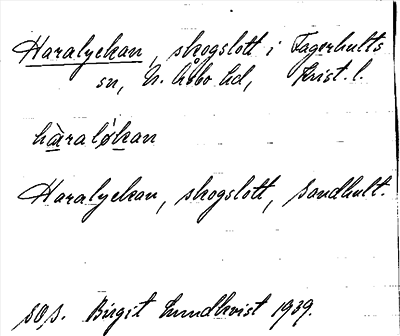 Haralyckan, skogslott i Fagerhults
sn, N. Åsbo hd, Krist. l.
hàraló̢kan
Haralyckan, skogslott, Sandhult.
SOS. Birgit Lundkvist 1939.